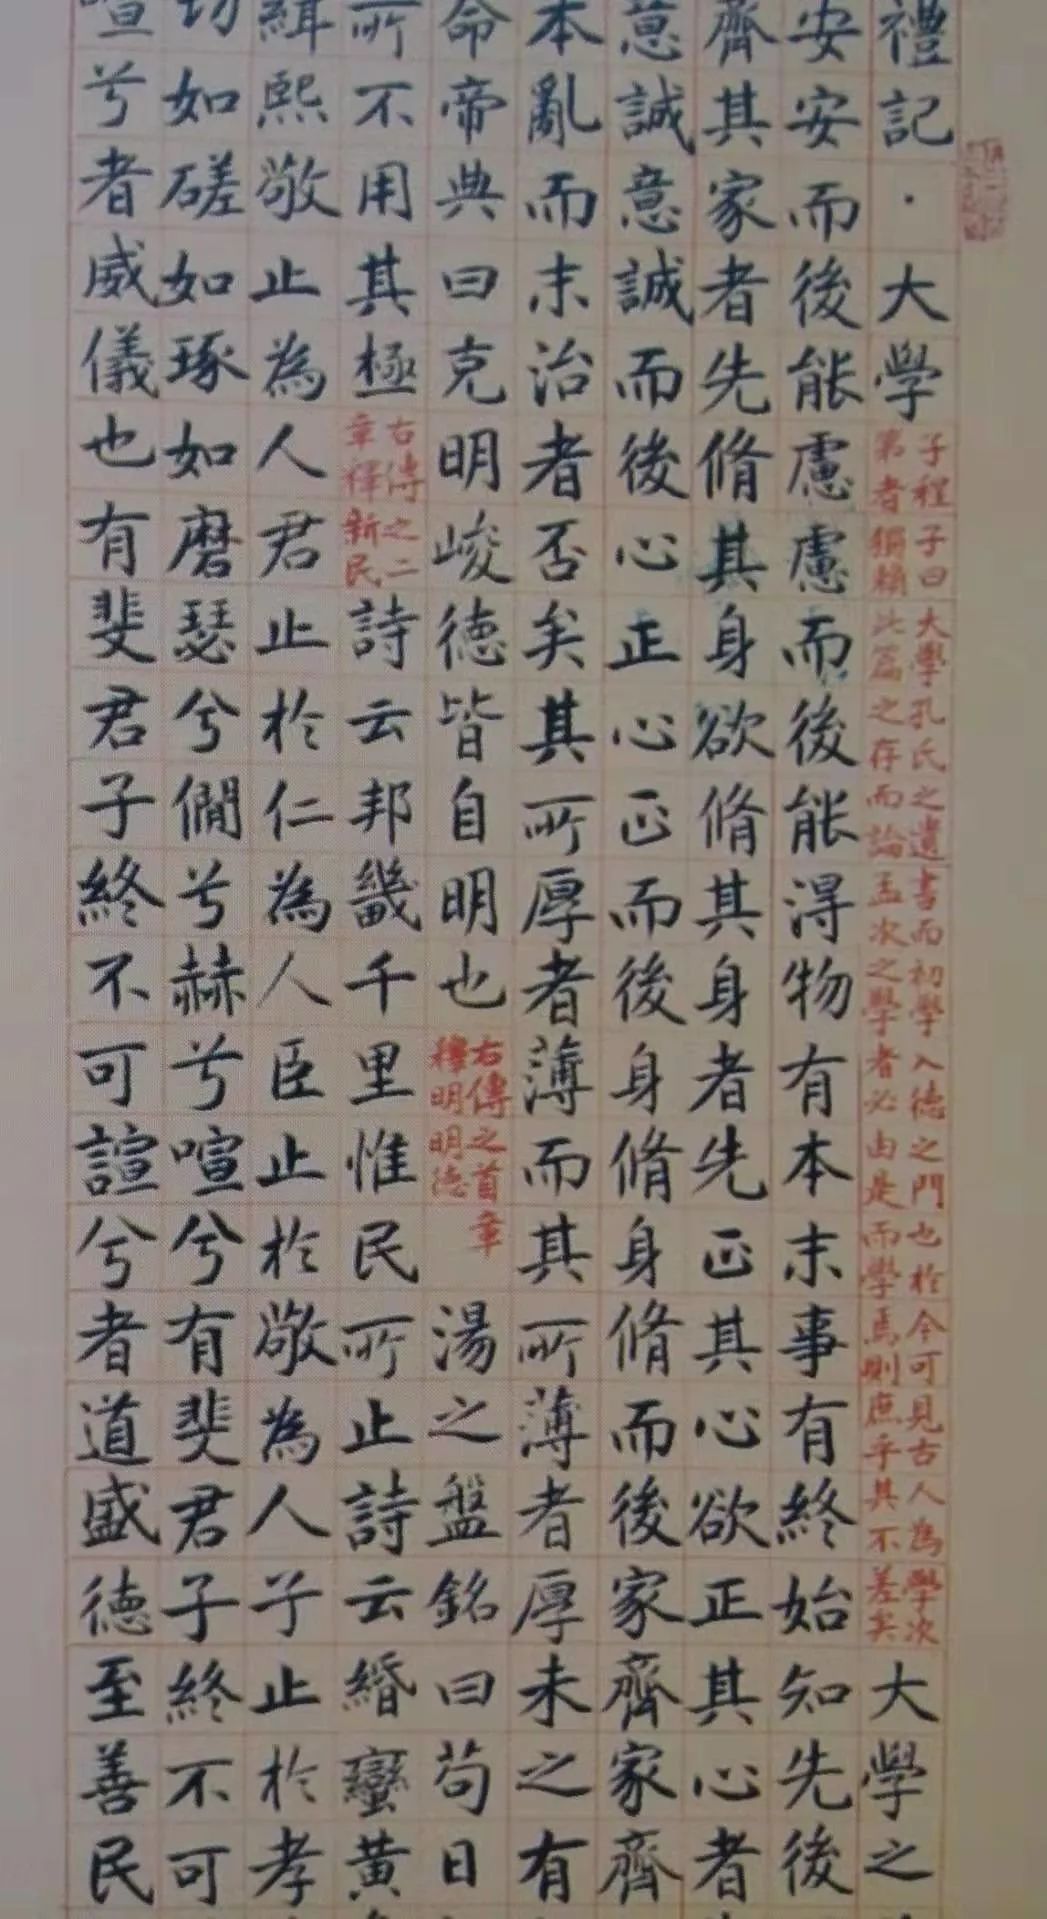 禮記·大學
子程子曰大學孔氏之遺書而初學入德之門也於今可見古人為學次
第者獨賴此篇之存而論孟次之學者必由是而學焉則庶乎其不差矣
大學之
安安而後能慮慮而後能得物有本末事有終始知先後
齊其家者先脩其身欲脩其身者先正其心欲正其心者
意誠意誠而後心正心正而後身脩身脩而後家齊家齊
本亂而末治者否矣其所厚者薄而其所薄者厚未之有
命帝典曰克明峻德皆自明也
右傳之首章
釋明明德
湯之盤銘曰苟日
所不用其極
右傳之二
章釋新民
詩云邦畿千里惟民所止詩云緡蠻黃
緝熙敬止為人君止於仁為人臣止於敬為人子止於孝
切如磋如琢如磨瑟兮僩兮赫兮喧兮有斐君子終不可
喧兮者威儀也有斐君子終不可諠兮者道盛德至善民